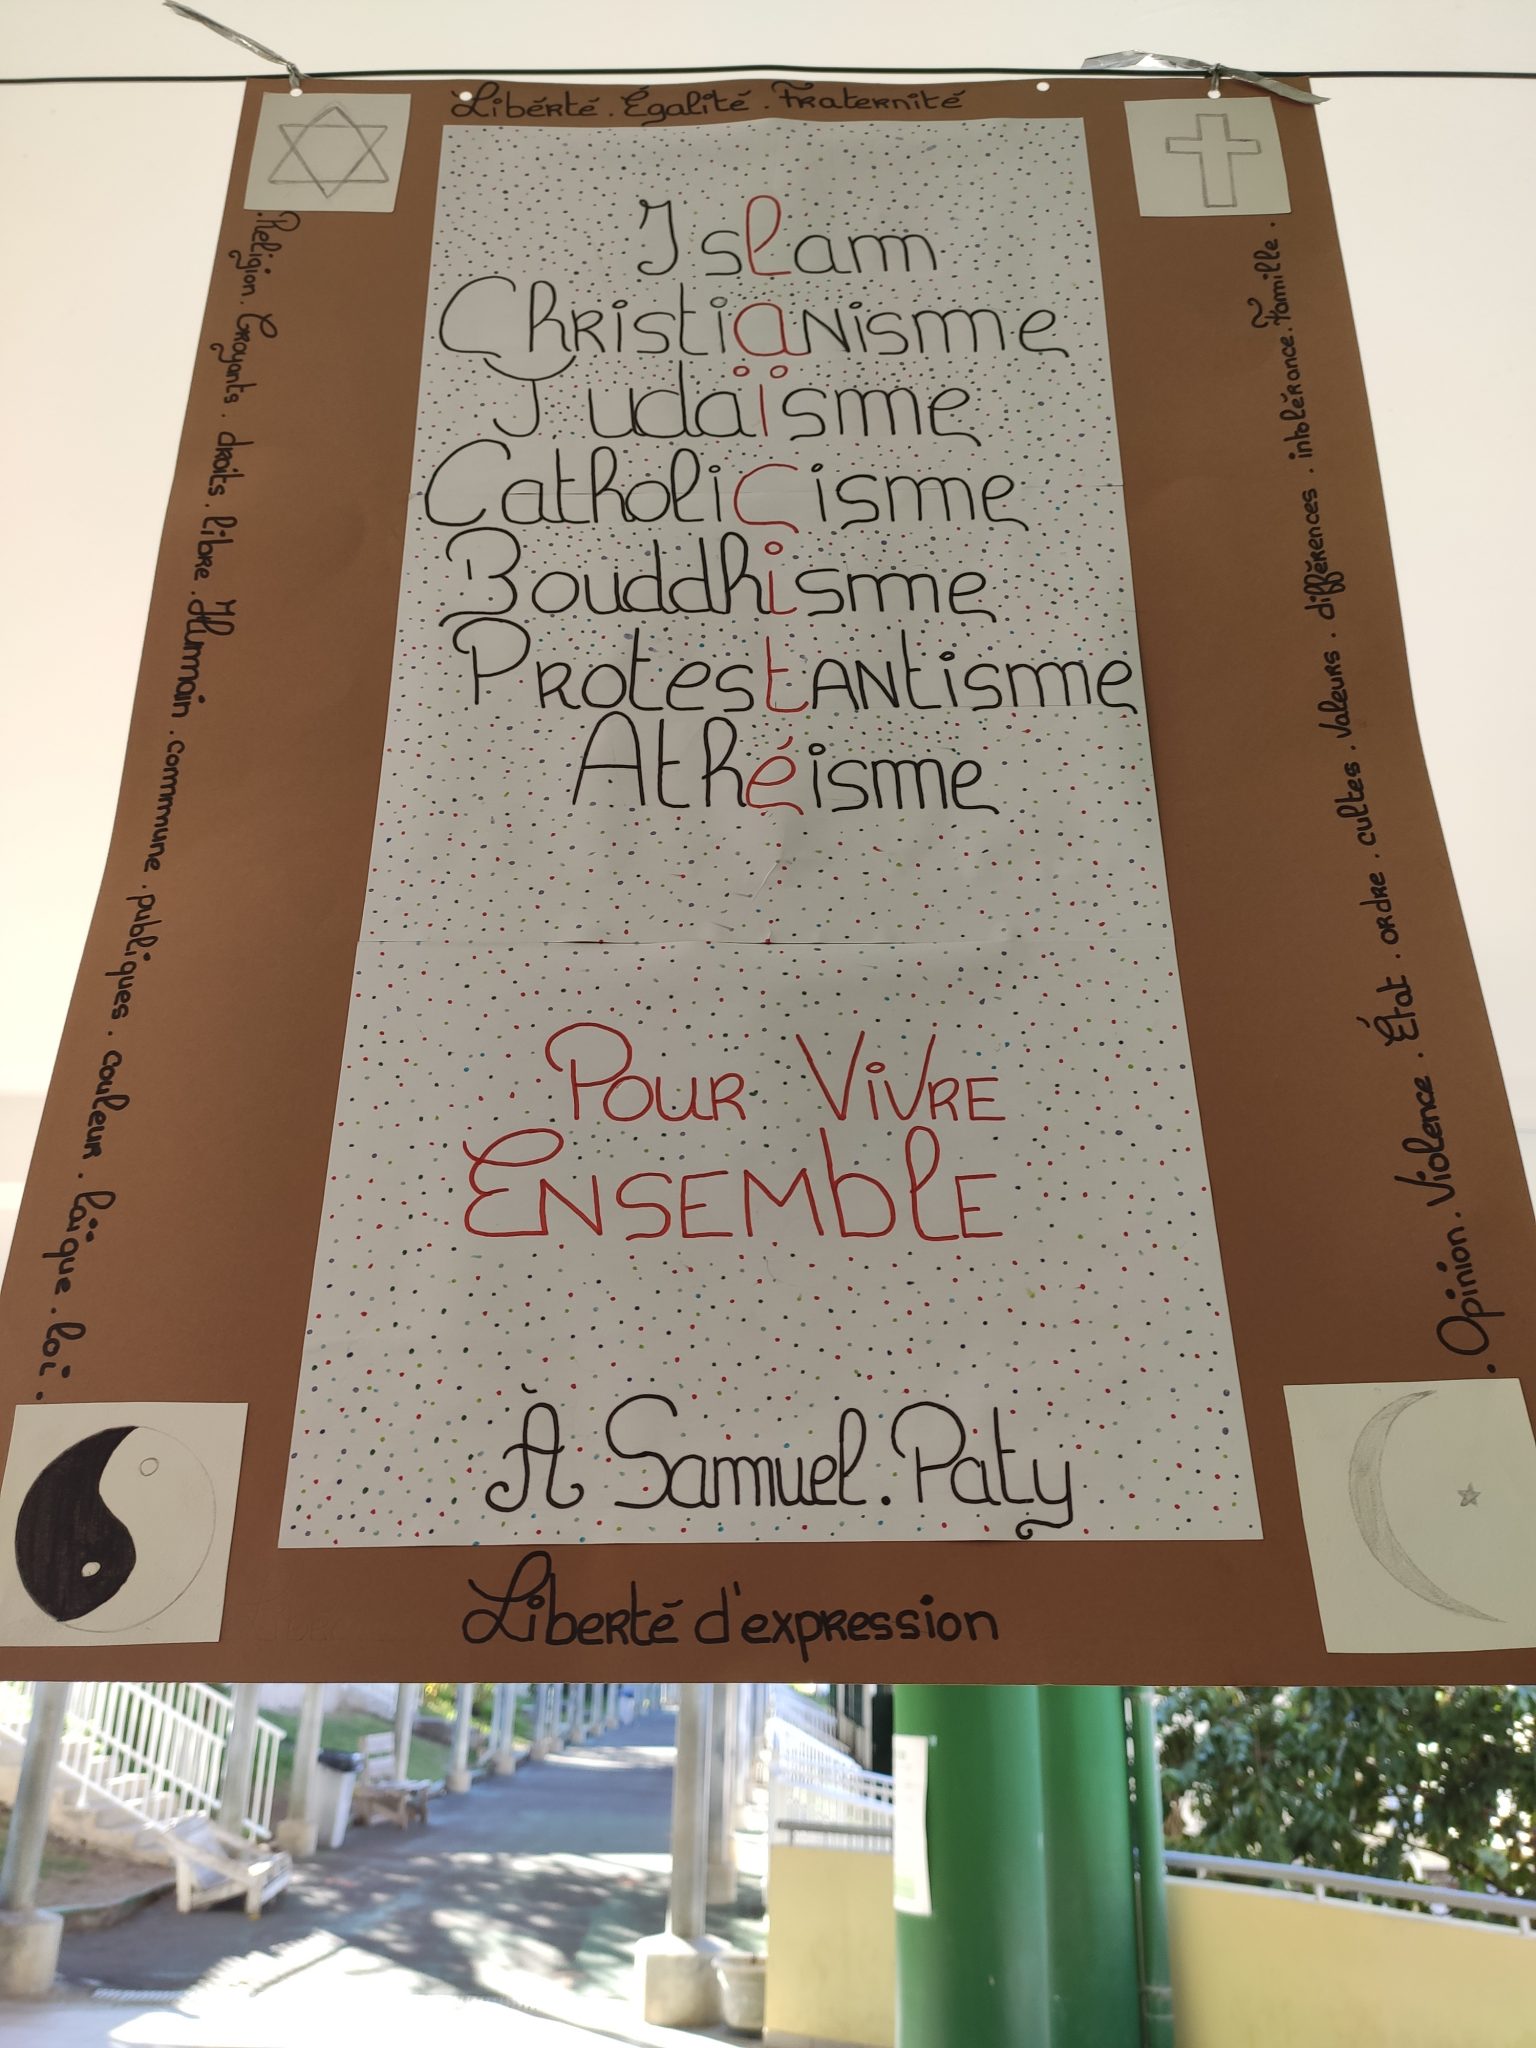 Liberté. Égalité. Fraternité
Islam
Christianisme
Judaïsme
Catholicisme
Bouddhisme
Protestantisme
Athéisme
Pour Vivre
Ensemble
À Samuel. Paty
Liberté d'expression
.Religion. Croyants. droits. libre. Humain. commune. publiques. couleur. laïque. loi.
.Opinion. Violence. État. ordre. cultes. Valeurs. différences. intolérance. Famille.